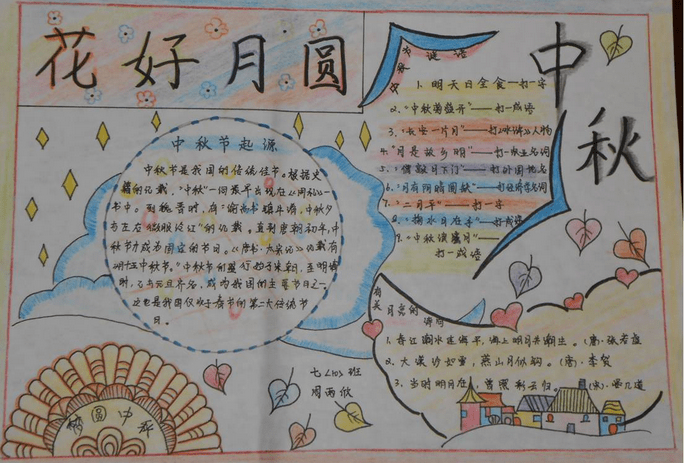 花好月圆
中秋
中秋节谜语
1. 明天日全食——打一字
2. "中秋菊盛开"——打一成语
3. "长安一片月"——打《水浒》人物
4. "月是故乡明"——打一农业名词
5. "僧敲月下门"——打外国地名
6. "月有阴晴圆缺"——打经济学名词
7. "二月平"——打一字
8. "掬水月在手"——打成语
9. "中秋度蜜月"——
打一成语
中秋节起源
中秋节是我国的传统佳节。根据史
籍的记载,"中秋"一词最早出现在《周礼》一
书中。到魏晋时,有"谕尚书镇牛渚,中秋夕
与左右微服泛江"的记载。直到唐朝初年,中
秋节才成为固定的节日。《唐书·太宗记》记载有
"八月十五中秋节。"中秋节的盛行始于宋朝,至明清
时,已与元旦齐名,成为我国的主要节日之一
这也是我国仅次于春节的第二大传统节
日。
有关月亮的诗句
1. 春江潮水连海平,海上明月共潮生。(唐)张若虚
2. 大漠沙如雪,燕山月似钩。(唐)李贺
3. 当时明月在,曾照彩云归。(宋)晏几道
七〈10〉班
周雨欣